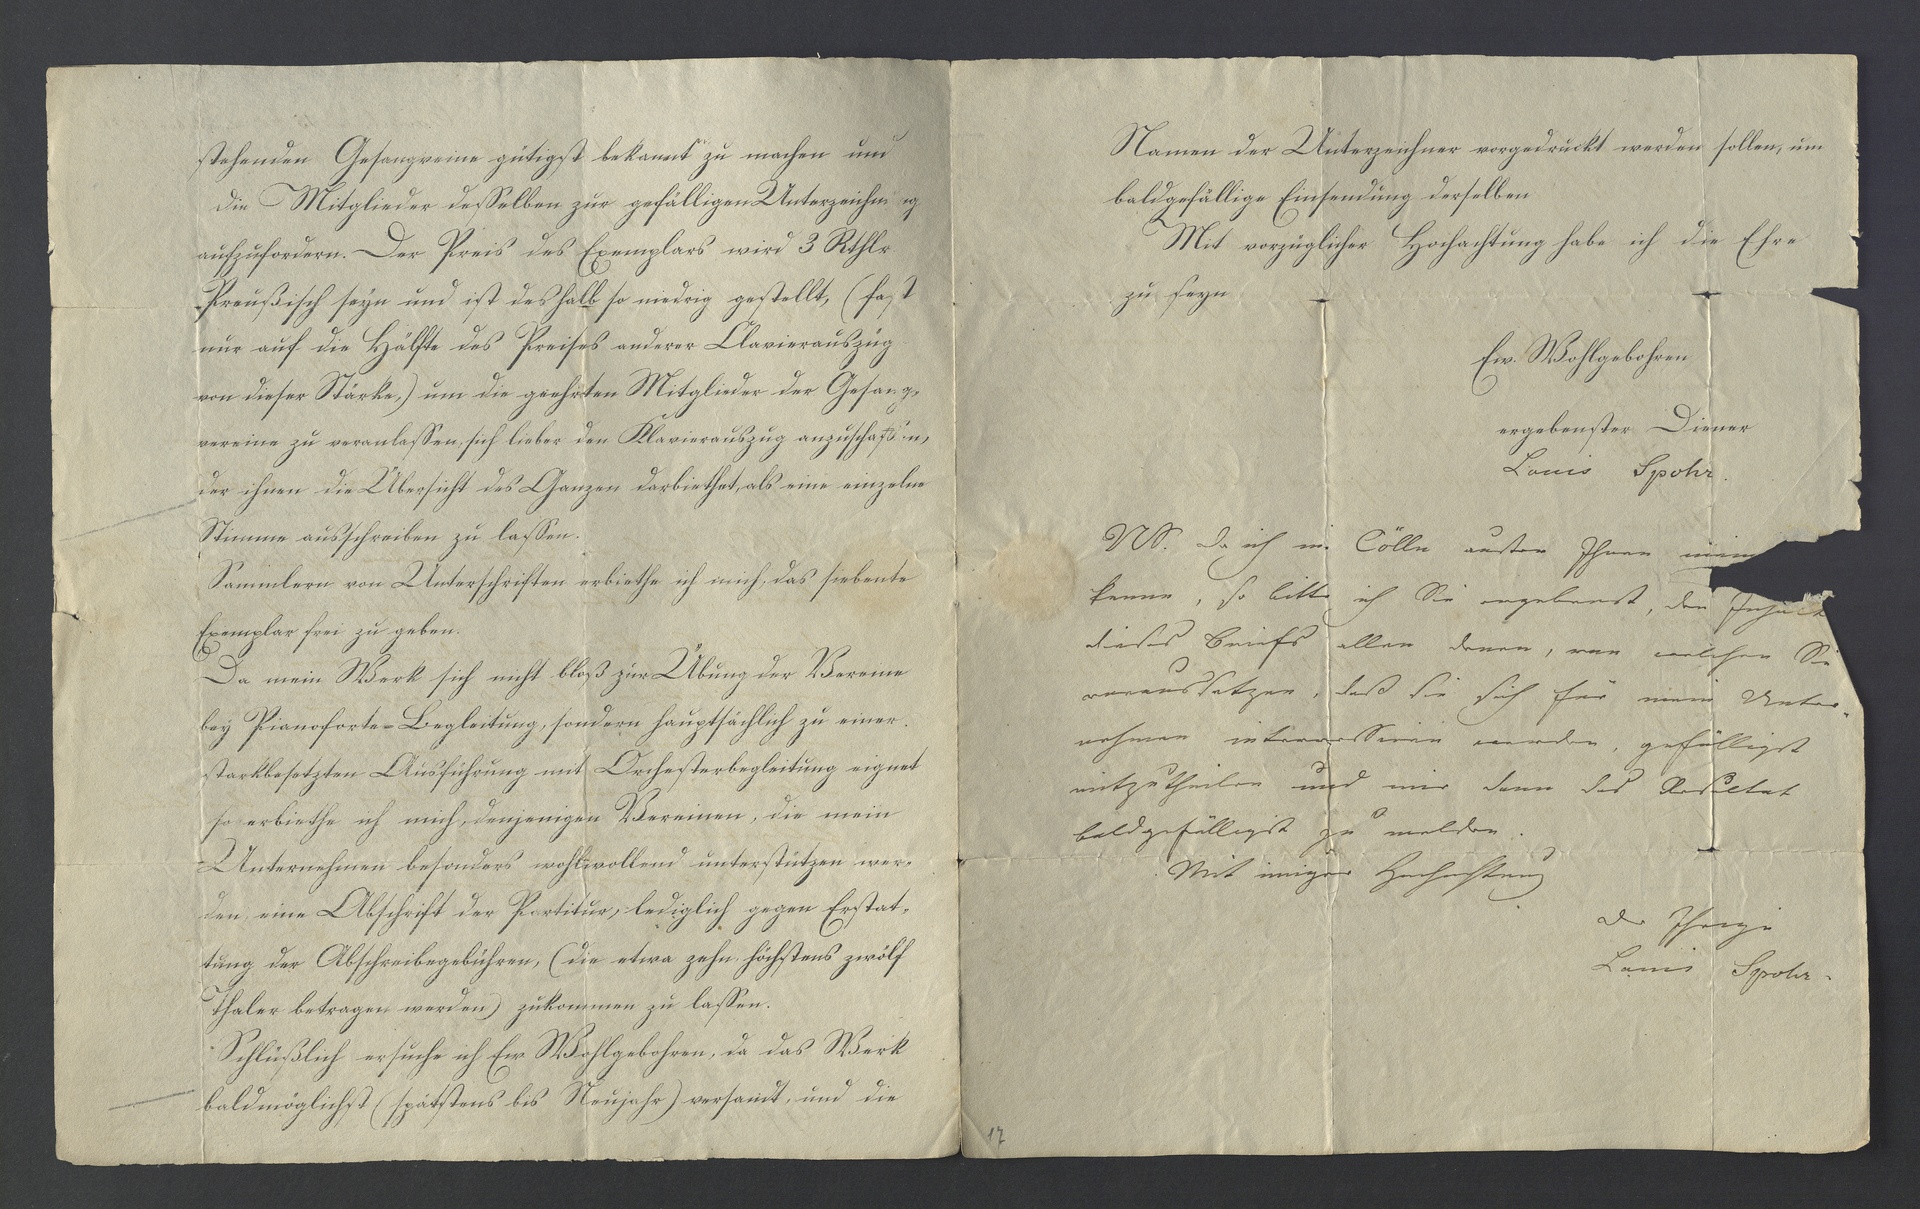 stehenden Gesangvreine gütigst bekannt zu machen und
die Mitglieder desselben zur gefälligen Unterzeichnung
aufzufordern. Der Preis des Exemplars wird 3 Rthlr
Preußisch seyn und ist deshalb so niedrig gestellt, (fast
nur auf die Hälfte des Preises anderer Clavierauszüg
von dieser Stärke,) um die geehrten Mitglieder der Gesang-
vereine zu veranlassen, sich lieber den Klavierauszug anzuschaffen,
der ihnen die Übersicht des Ganzen darbiethet, als eine einzelne
Stimme ausschreiben zu lassen.
Sammlern von Unterschriften erbiethe ich mich, das siebente
Exemplar frei zu geben.
Da mein Werk sich nicht bloß zur Übung der Vereine
bey Pianoforte-Begleitung, sondern hauptsächlich zu einer
starkbesetzten Ausführung mit Orchesterbegleitung eignet
so erbiethe ich mich, denjenigen Vereinen, die mein
Unternehmen besonders wohlwollend unterstützen wer-
den, eine Abschrift der Partitur, lediglich gegen Erstat-
tung der Abschreibegebühren, (die etwa zehn, höchstens zwölf
Thaler betragen werden) zukommen zu lassen.
Schlüßlich ersuche ich Ew Wohlgebohren, da das Werk
baldmöglichst (spätstens bis Neujahr) versandt, und die
17
Namen der Unterzeichner vorgedruckt werden sollen, um
baldgefällige Einsendung derselben
Mit vorzüglicher Hochachtung habe ich die Ehre
zu seyn
Ew. Wohlgebohren
ergebenster Diener
Louis Spohr.
NS. Da ich in Cölln ausser Ihnen niem
kenne, so bitte ich Sie ergebenst, den Inhalt
dieses Briefs allen denen, von welchen Sie
voraussetzen, daß sie sich für mein Unter-
nehmen interessiren werden, gefälligst
mitzutheilen und mir dann das Resultat
baldgefälligst zu melden.
Mit inniger Hochachtung
der Ihrige
Louis Spohr.